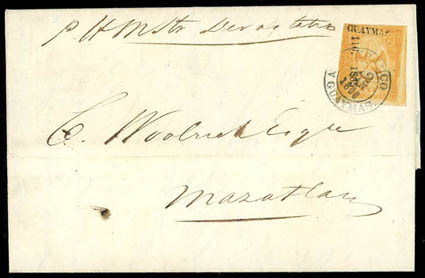 p H M Str Devastation
GUAYMAS
MEXICO
1866
GUAYMAS.
C. Woolrich Esqre
Mazatlan